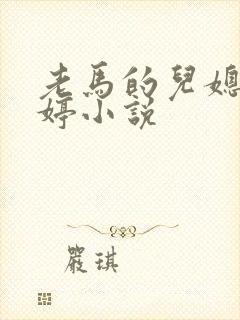 老馬的兒媳
婷小說
嚴琪